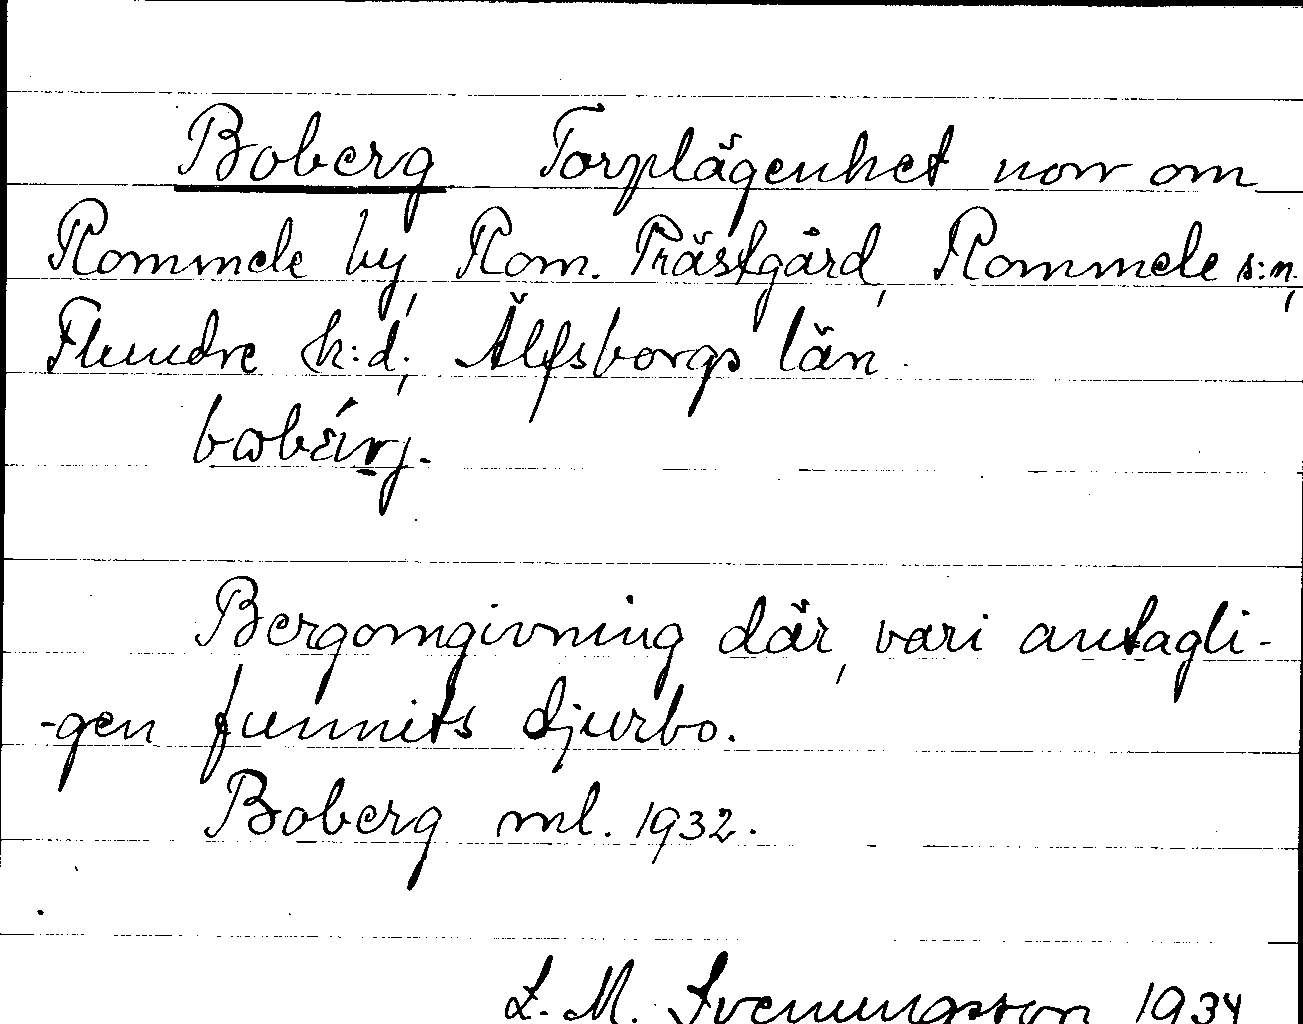 Boberg Torplägenhet norr om
Rommele by, Rom. Prästgård, Rommele s:n,
Flundre h:d, Älfsborgs län
Bergomgivning där, vari antagli-
-gen funnits djurbo.
Boberg ml. 1932.
L. M. Svenungsson 1934